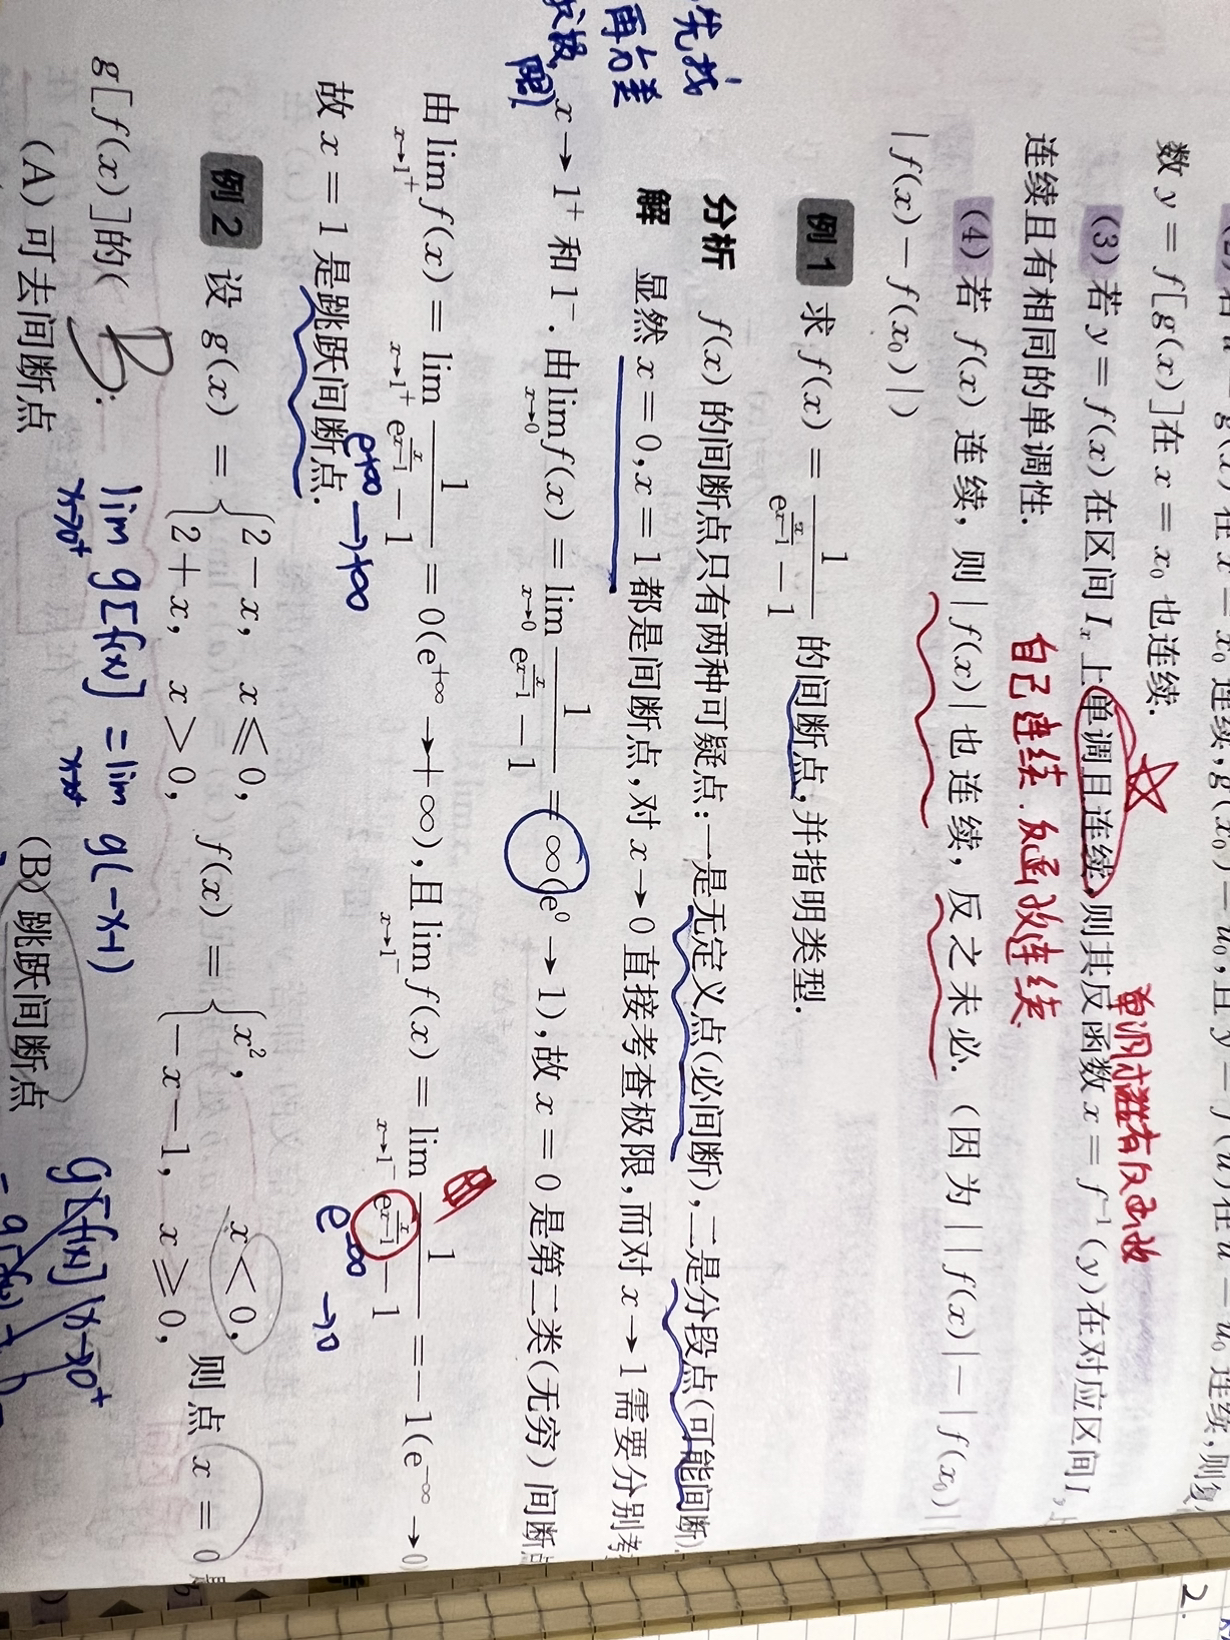 数 y = f[g(x)]在 x = x₀ 也连续.
(3) 若 y = f(x) 在区间 Iₓ 上单调且连续,则其反函数 x = f⁻¹(y)在对应区间 I
连续且有相同的单调性.
自己连续.反函数连续.
(4) 若 f(x) 连续, 则|f(x)|也连续, 反之未必. (因为||f(x)|-|f(x₀)|
|f(x) - f(x₀)|)
例1 求 f(x) = 1/(e^{x/(x-1)} - 1) 的间断点,并指明类型.
先找
再分类
分析 f(x) 的间断点只有两种可疑点:一是无定义点(必间断),二是分段点(可能间断)
解 显然 x = 0, x = 1 都是间断点,对 x → 0 直接考查极限,而对 x → 1 需要分别考
x → 1⁺ 和 1⁻. 由 lim_{x→0} f(x) = lim_{x→0} 1/(e^{x/(x-1)} - 1) = ∞(e⁰ → 1), 故 x = 0 是第二类(无穷)间断
由 lim_{x→1⁺} f(x) = lim_{x→1⁺} 1/(e^{x/(x-1)} - 1) = 0(e^{+∞} → +∞), 且 lim_{x→1⁻} f(x) = lim_{x→1⁻} 1/(e^{x/(x-1)} - 1) = -1(e^{-∞} → 0)
e^{+∞} → +∞
e^{-∞} → 0
故 x = 1 是跳跃间断点.
例2 设 g(x) = { 2 - x, x ≤ 0, 2 + x, x > 0, f(x) = { x², x < 0, -x - 1, x ≥ 0, 则点 x = 0
g[f(x)]的( B
lim_{x→0⁺} g[f(x)] = lim_{x→0⁺} g(-x-1)
g[f(x)] x→0⁺
(A) 可去间断点 (B) 跳跃间断点
2.